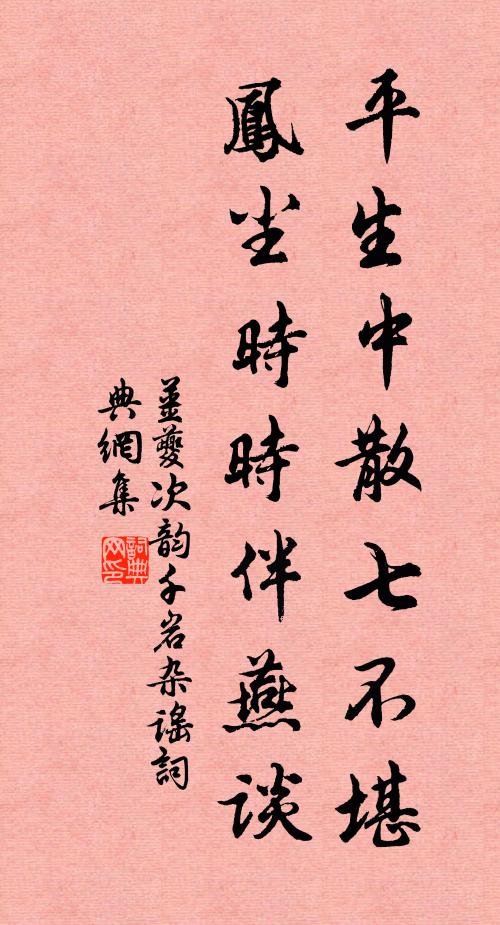 平生中散七不堪
鳳尘時時伴燕谈
薑夔次韵千岩杂謠詞
典網集
詞典
网印